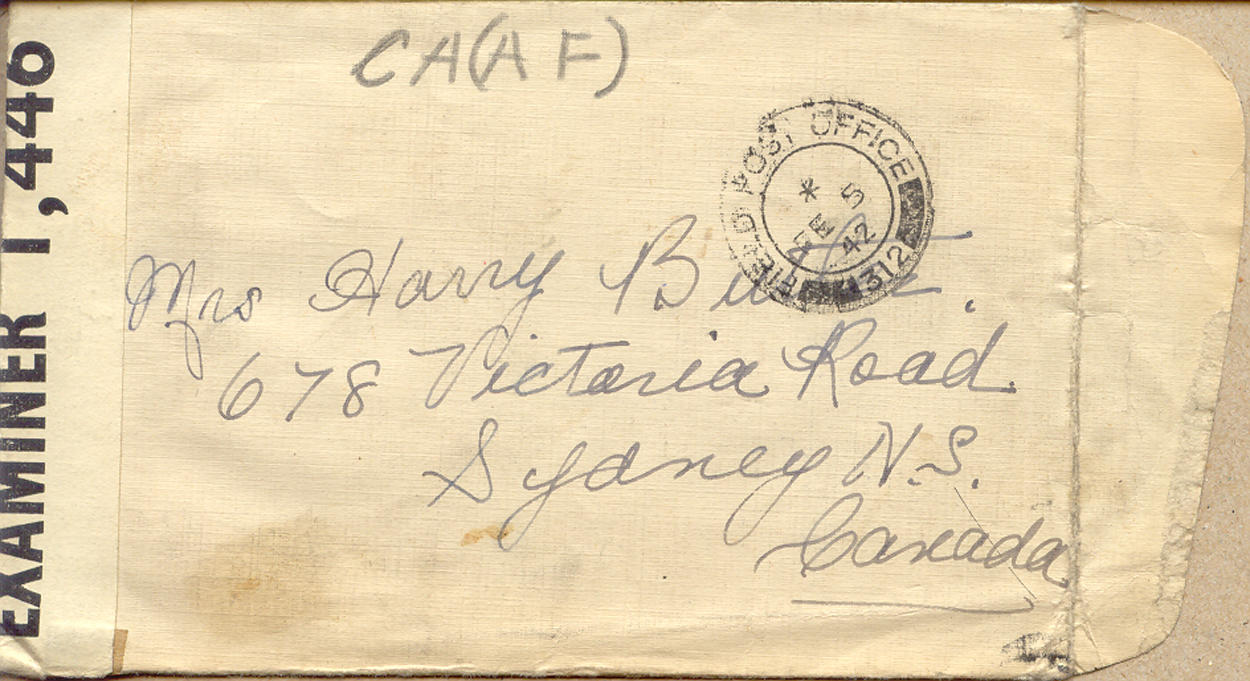 CA(AF)
FIELD POST OFFICE
* 5
FE
42
312
Mrs Harry
678 Victoria Road
Sydney N.S.
Canada
EXAMINER 1,446